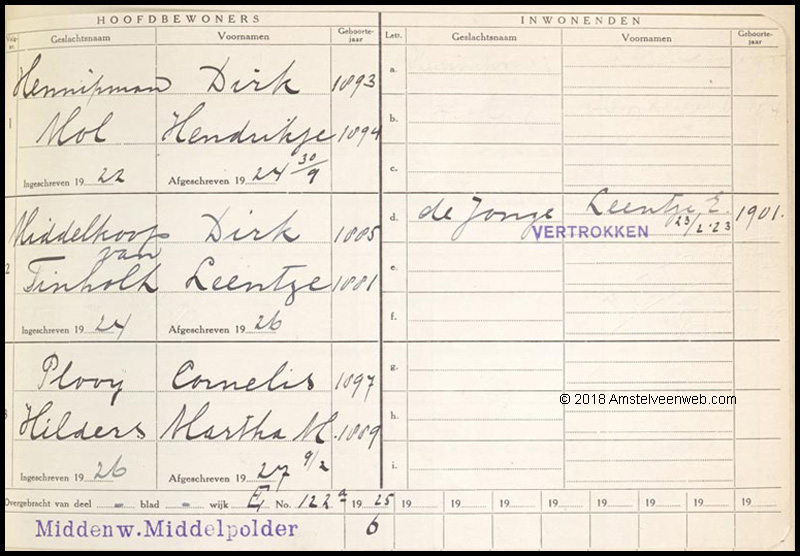 HOOFDBEWONERS INWONENDEN
Geslachtsnaam Voornamen Geboorte-jaar Lett. Geslachtsnaam Voornamen Geboorte-jaar
Hennipman Dirk 1893 a.
1 Mol Hendrikje 1894 b.
Ingeschreven 19 22 Afgeschreven 19 24 30/9 c.
Middelkoop van Dirk 1885 d. de Jonge Leentje E. 1901.
VERTROKKEN 23/2·23
2 Tinholt Leentje 1881 e.
Ingeschreven 19 24 Afgeschreven 19 26 f.
Plooy Cornelis 1897 g.
© 2018 Amstelveenweb.com
3 Hilders Martha M. 1889 h.
Ingeschreven 19 26 Afgeschreven 19 27 9/2 i.
Overgebracht van deel - blad - wijk E No. 122a 19 25 19 19 19 19 19 19 19 19
Middenw. Middelpolder 6